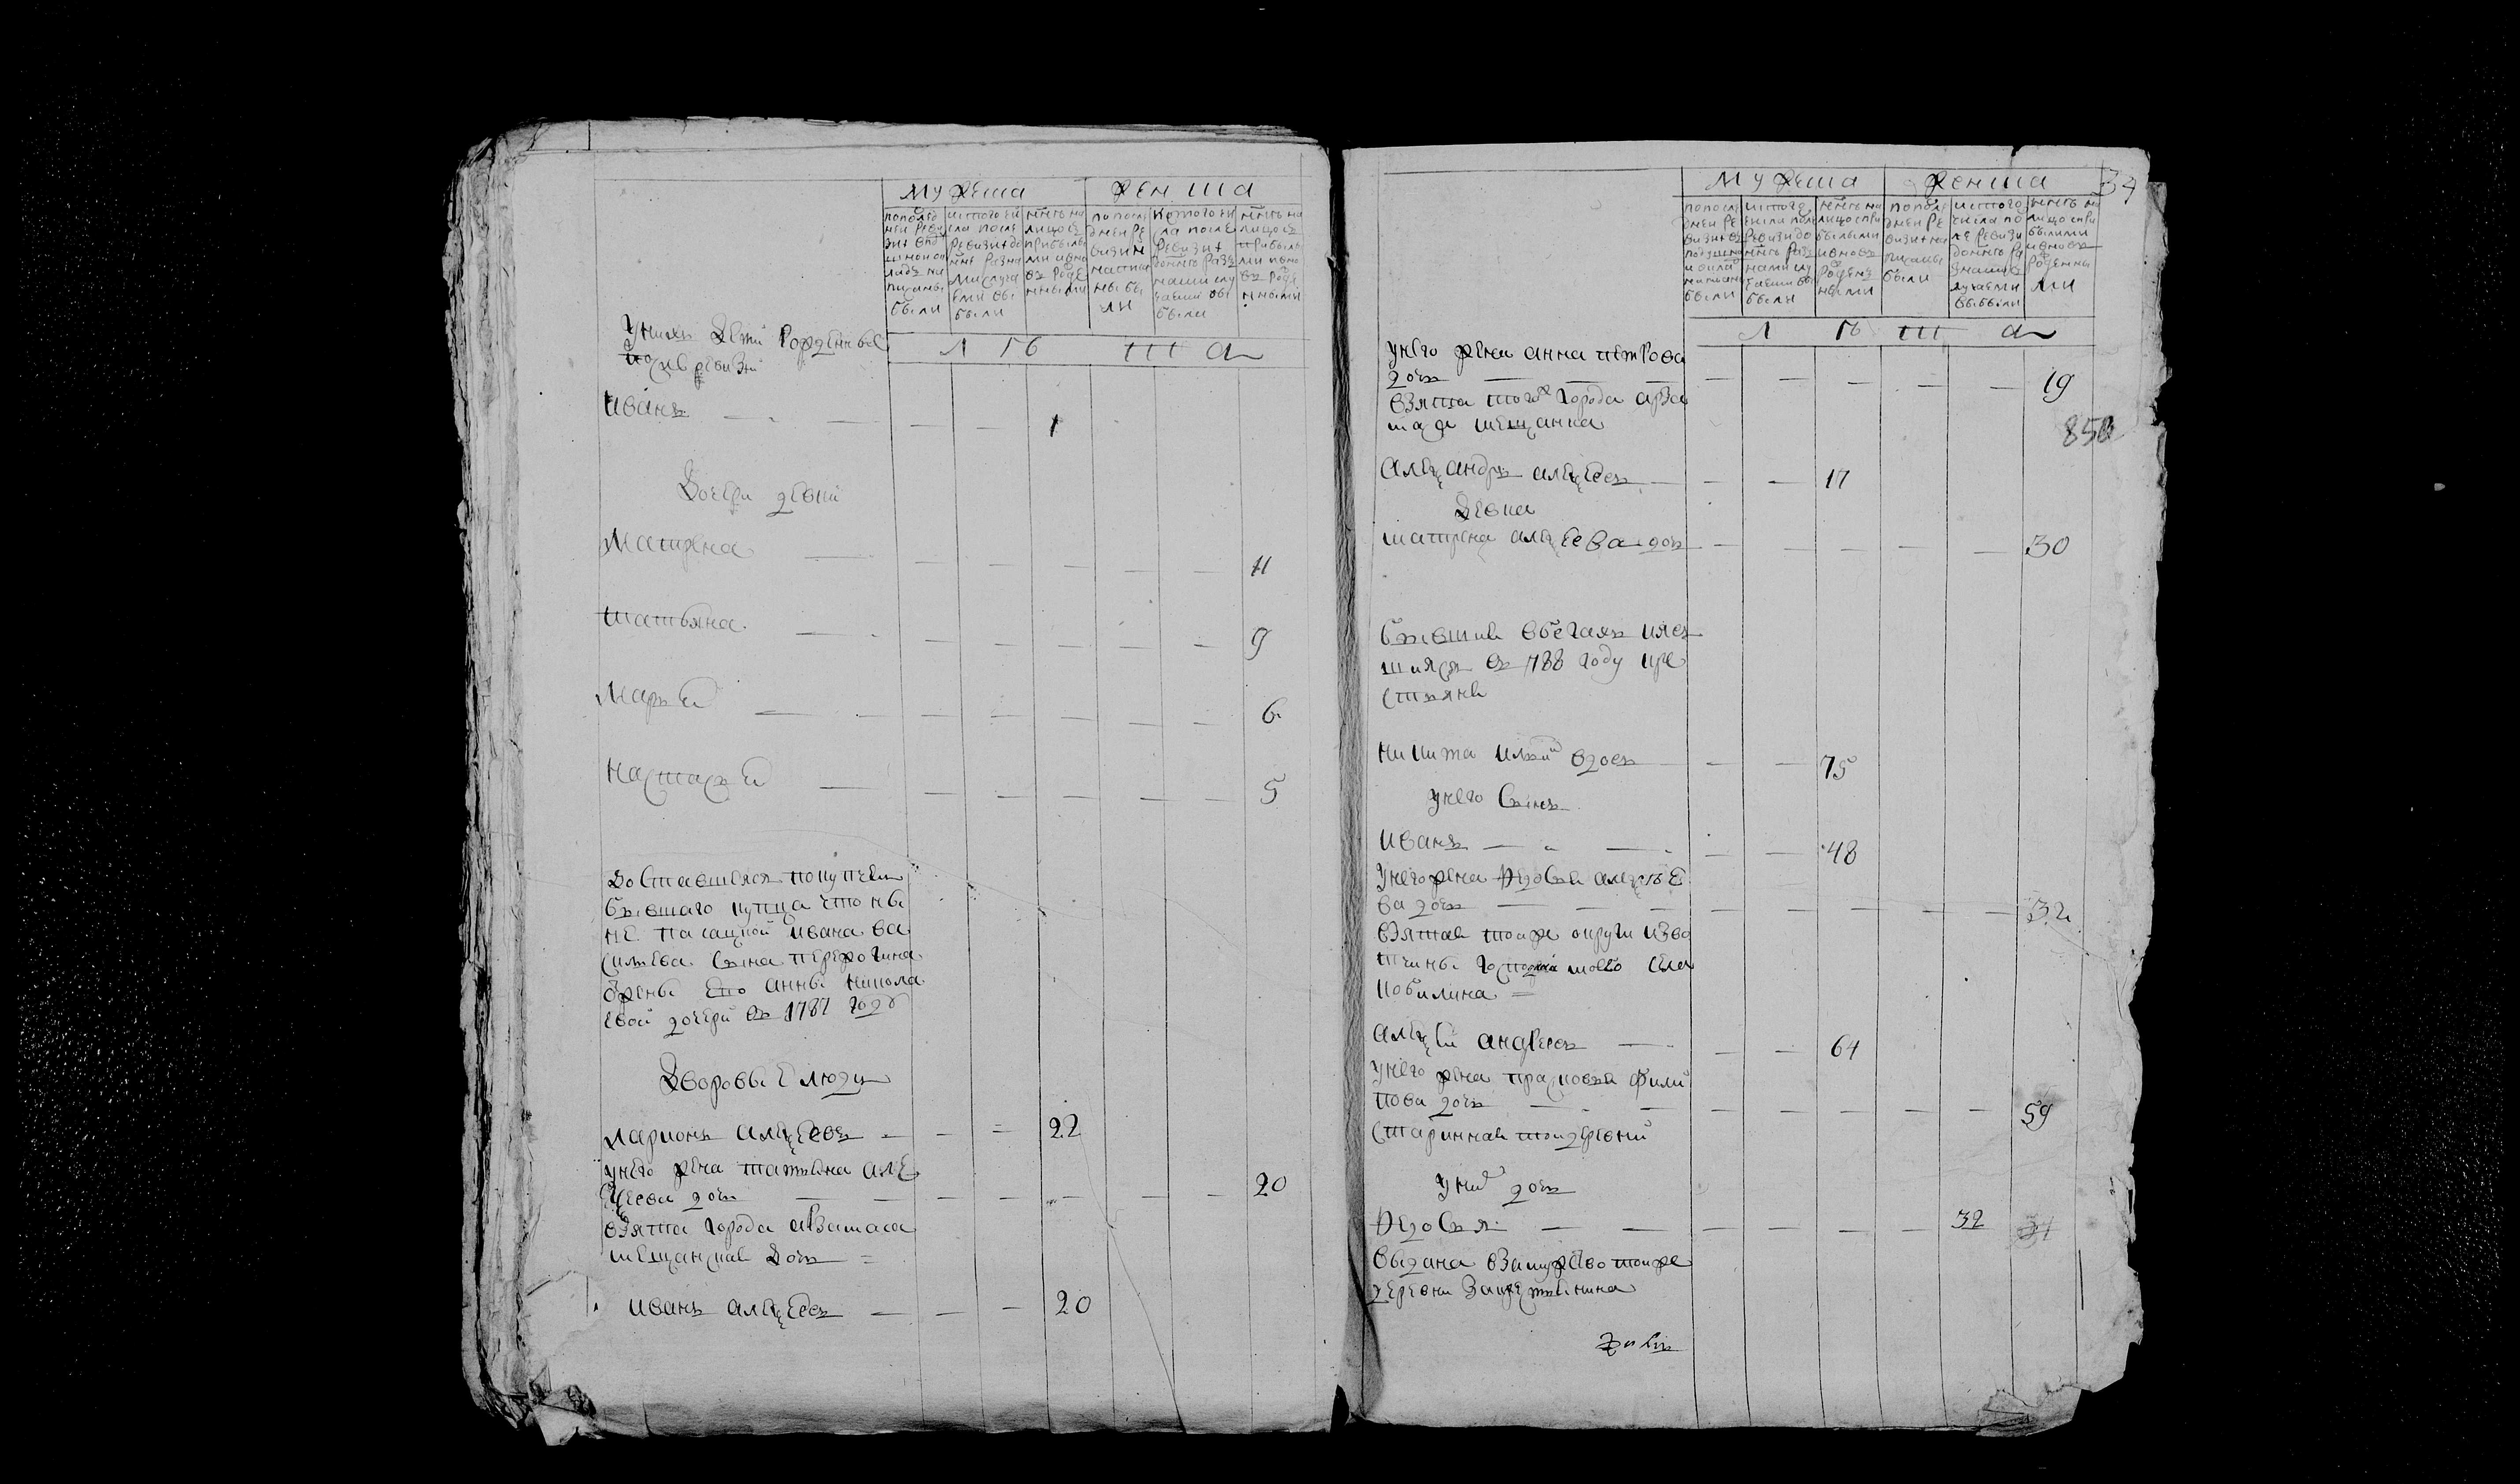 мужеска женска
пополед
ней реви
зии впо
душном ок
ладе на
писаны
были
истого чи
сла после
ревизии до
ныне разны
ми случа
ями вы
были
ныне на
лицо съ
прибылы
ми и вно
въ рожде
нными
по после
дней ре
визии
написа
ны бы
ли
ис того чи
сла после
ревизии
доныне разн
ными слу
чаями вы
были
ныне на
лицо съ
прибылы
ми и вно
въ рожде
нными
У них дети рожденные
по сле ревизии
лѣ та
иванъ 1
Дочери девки
Матрена 11
татьяна 9
Марья 6
Настасья 5
Доставшияся по купчей
бывшаго купца что ны
не иванa ва
сильева сына перерочина
от жены ево анны никола
евой дочери въ 1787 году
Дворовые люди
Ларионъ алексеевъ 22
унего жена татьяна але
ксеева дочь 20
взята города арзамаса
мещанская дочь
иванъ алексеевъ 20
мужеска женска 34
по после
дней ре
визии въ
подушном
окладе
написаны
были
ис того
числа после
ревизии до
ныне разны
ми слу
чаями вы
были
ныне на
лицо спри
былыми
и вновь
рожден
ными
по после
дней ре
визии на
писаны
были
ис того
числа по
сле ревизии
доныне ра
зными
случаями
выбыли
ныне на
лицо спри
былыми
и вновь
рожденны
ми
лѣ та
унего жена анна петрова
дочь 19
взята того ж города арза
маса мещанка
850
Александръ алексеевъ 17
Девка
матрена алексеева дочь 30
бывшие вбегахъ и яв
шияся въ 788 году кре
стьяне
никита ильинъ вдовъ 75
унего сынъ
иванъ 48
унего жена Федосья алексее
ва дочь 32
взятая тоеж округи из во
тчины села
алексей андреевъ 64
унего жена прасковья фили
пова дочь 59
старинная тои деревни
у них дочь
Федосья 32 31
выдана взамужство тоиже
деревни за крестьянина